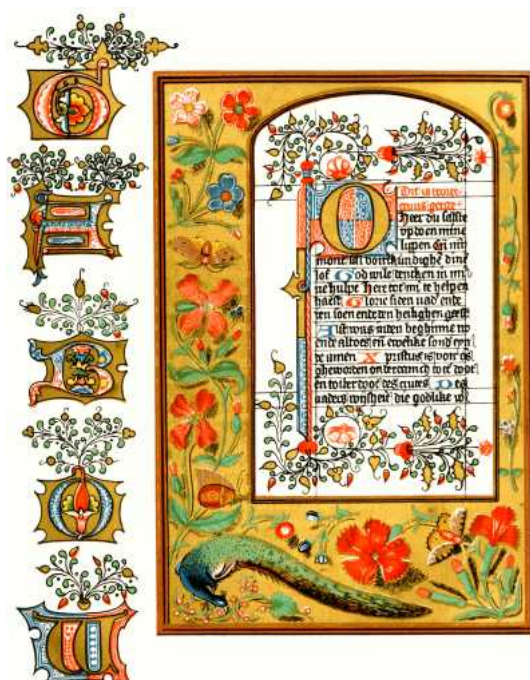 Dit is vander
cruus getide
Heer du salste
up doen mine
lippen En min
mont sal voirtkundighe dine
lof God wile dencken in mi
ne hulpe Heer tot mi te helpen
haest Glorie si den vad ende
den soen ende den heilighen geest
Alst was inden beghinne nv
ende altoes en ewelike sonder eyn
de amen Xpristus is voir os
gheworden onderdanich totter doot
en toter doot des cruces Des
vaders wijsheit die godlike w